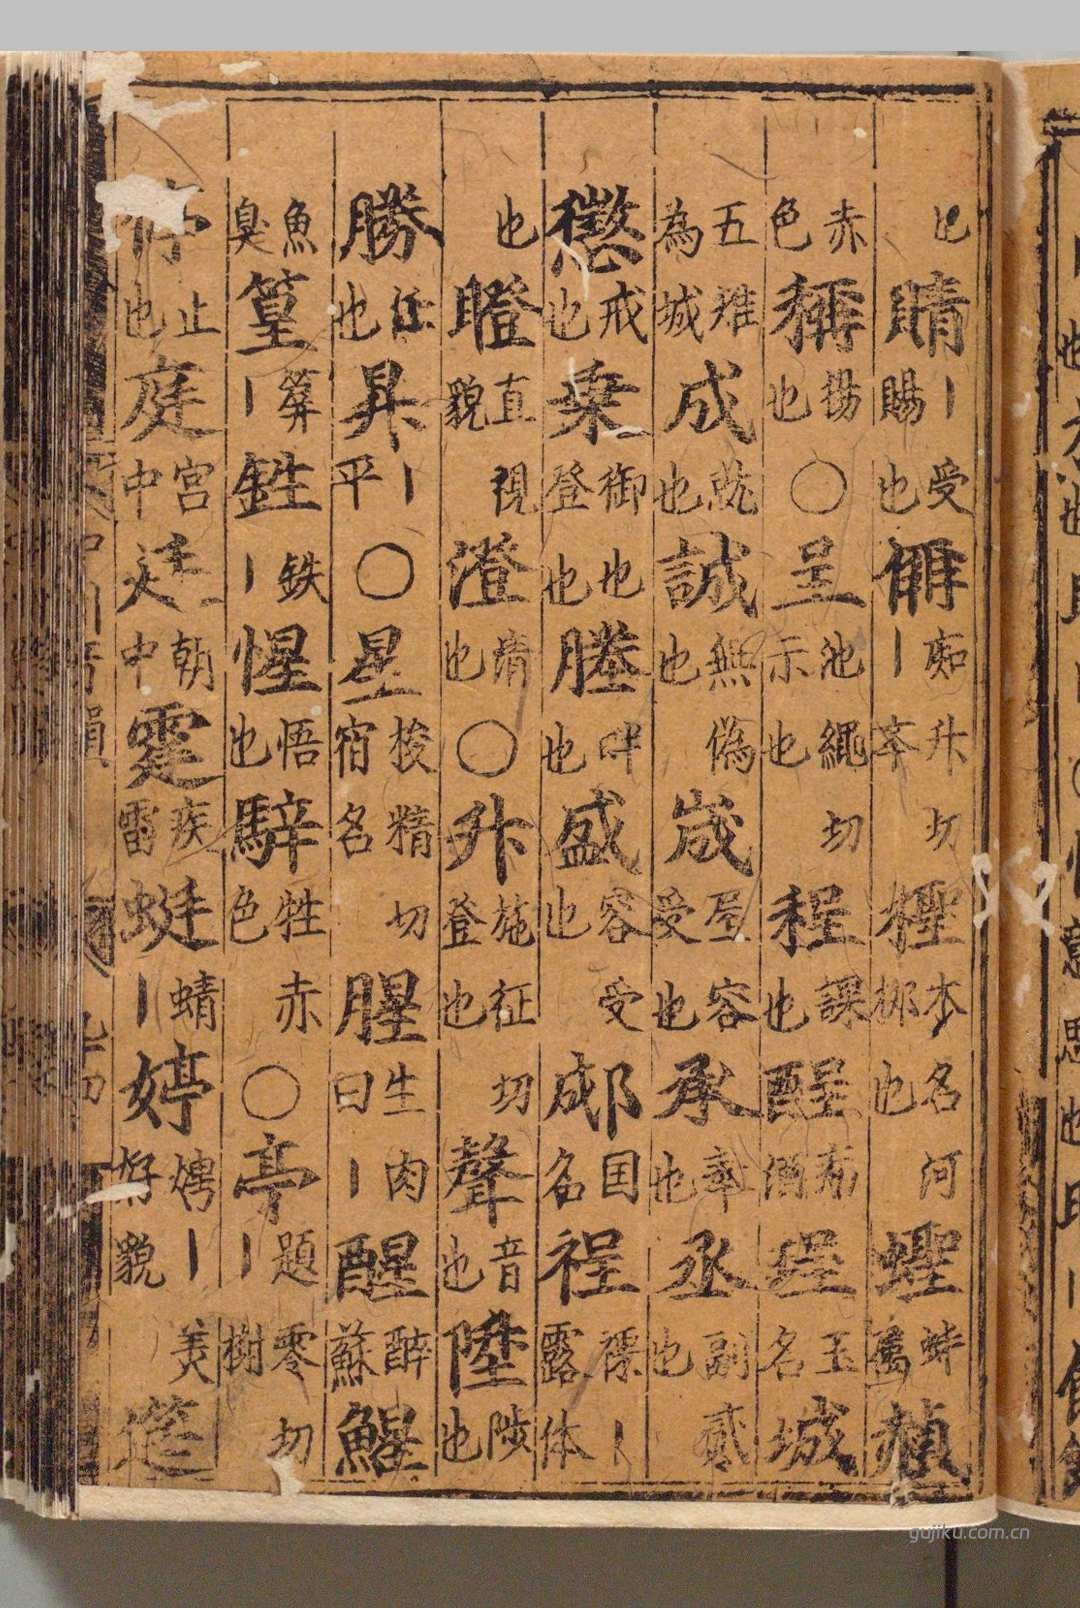 也䝼丨受賜也偁痴升切丨檉本名河柳也蟶蚌屬赬
赤色稱揚也〇呈池繩切示也程課也酲病酒珵玉名城
五雉為城成就也誠無偽也宬屋容受也承奉也丞副貳也
懲戒也乗御也登也塍畔也盛容受也郕囯名裎裸丨露体
也瞪直視貌澄清也〇升施征切登也聲音也陞陟也
勝任也昇丨平〇星梭精切宿名腥生肉曰丨醒醉蘇鯹
魚臭篂箳丨鉎鉄丨惺悟也騂牲赤色〇亭題零切丨樹
停止也庭宮中廷朝中霆疾雷蜓蜻丨婷娉丨美好貌筳
gujiku.com.cn